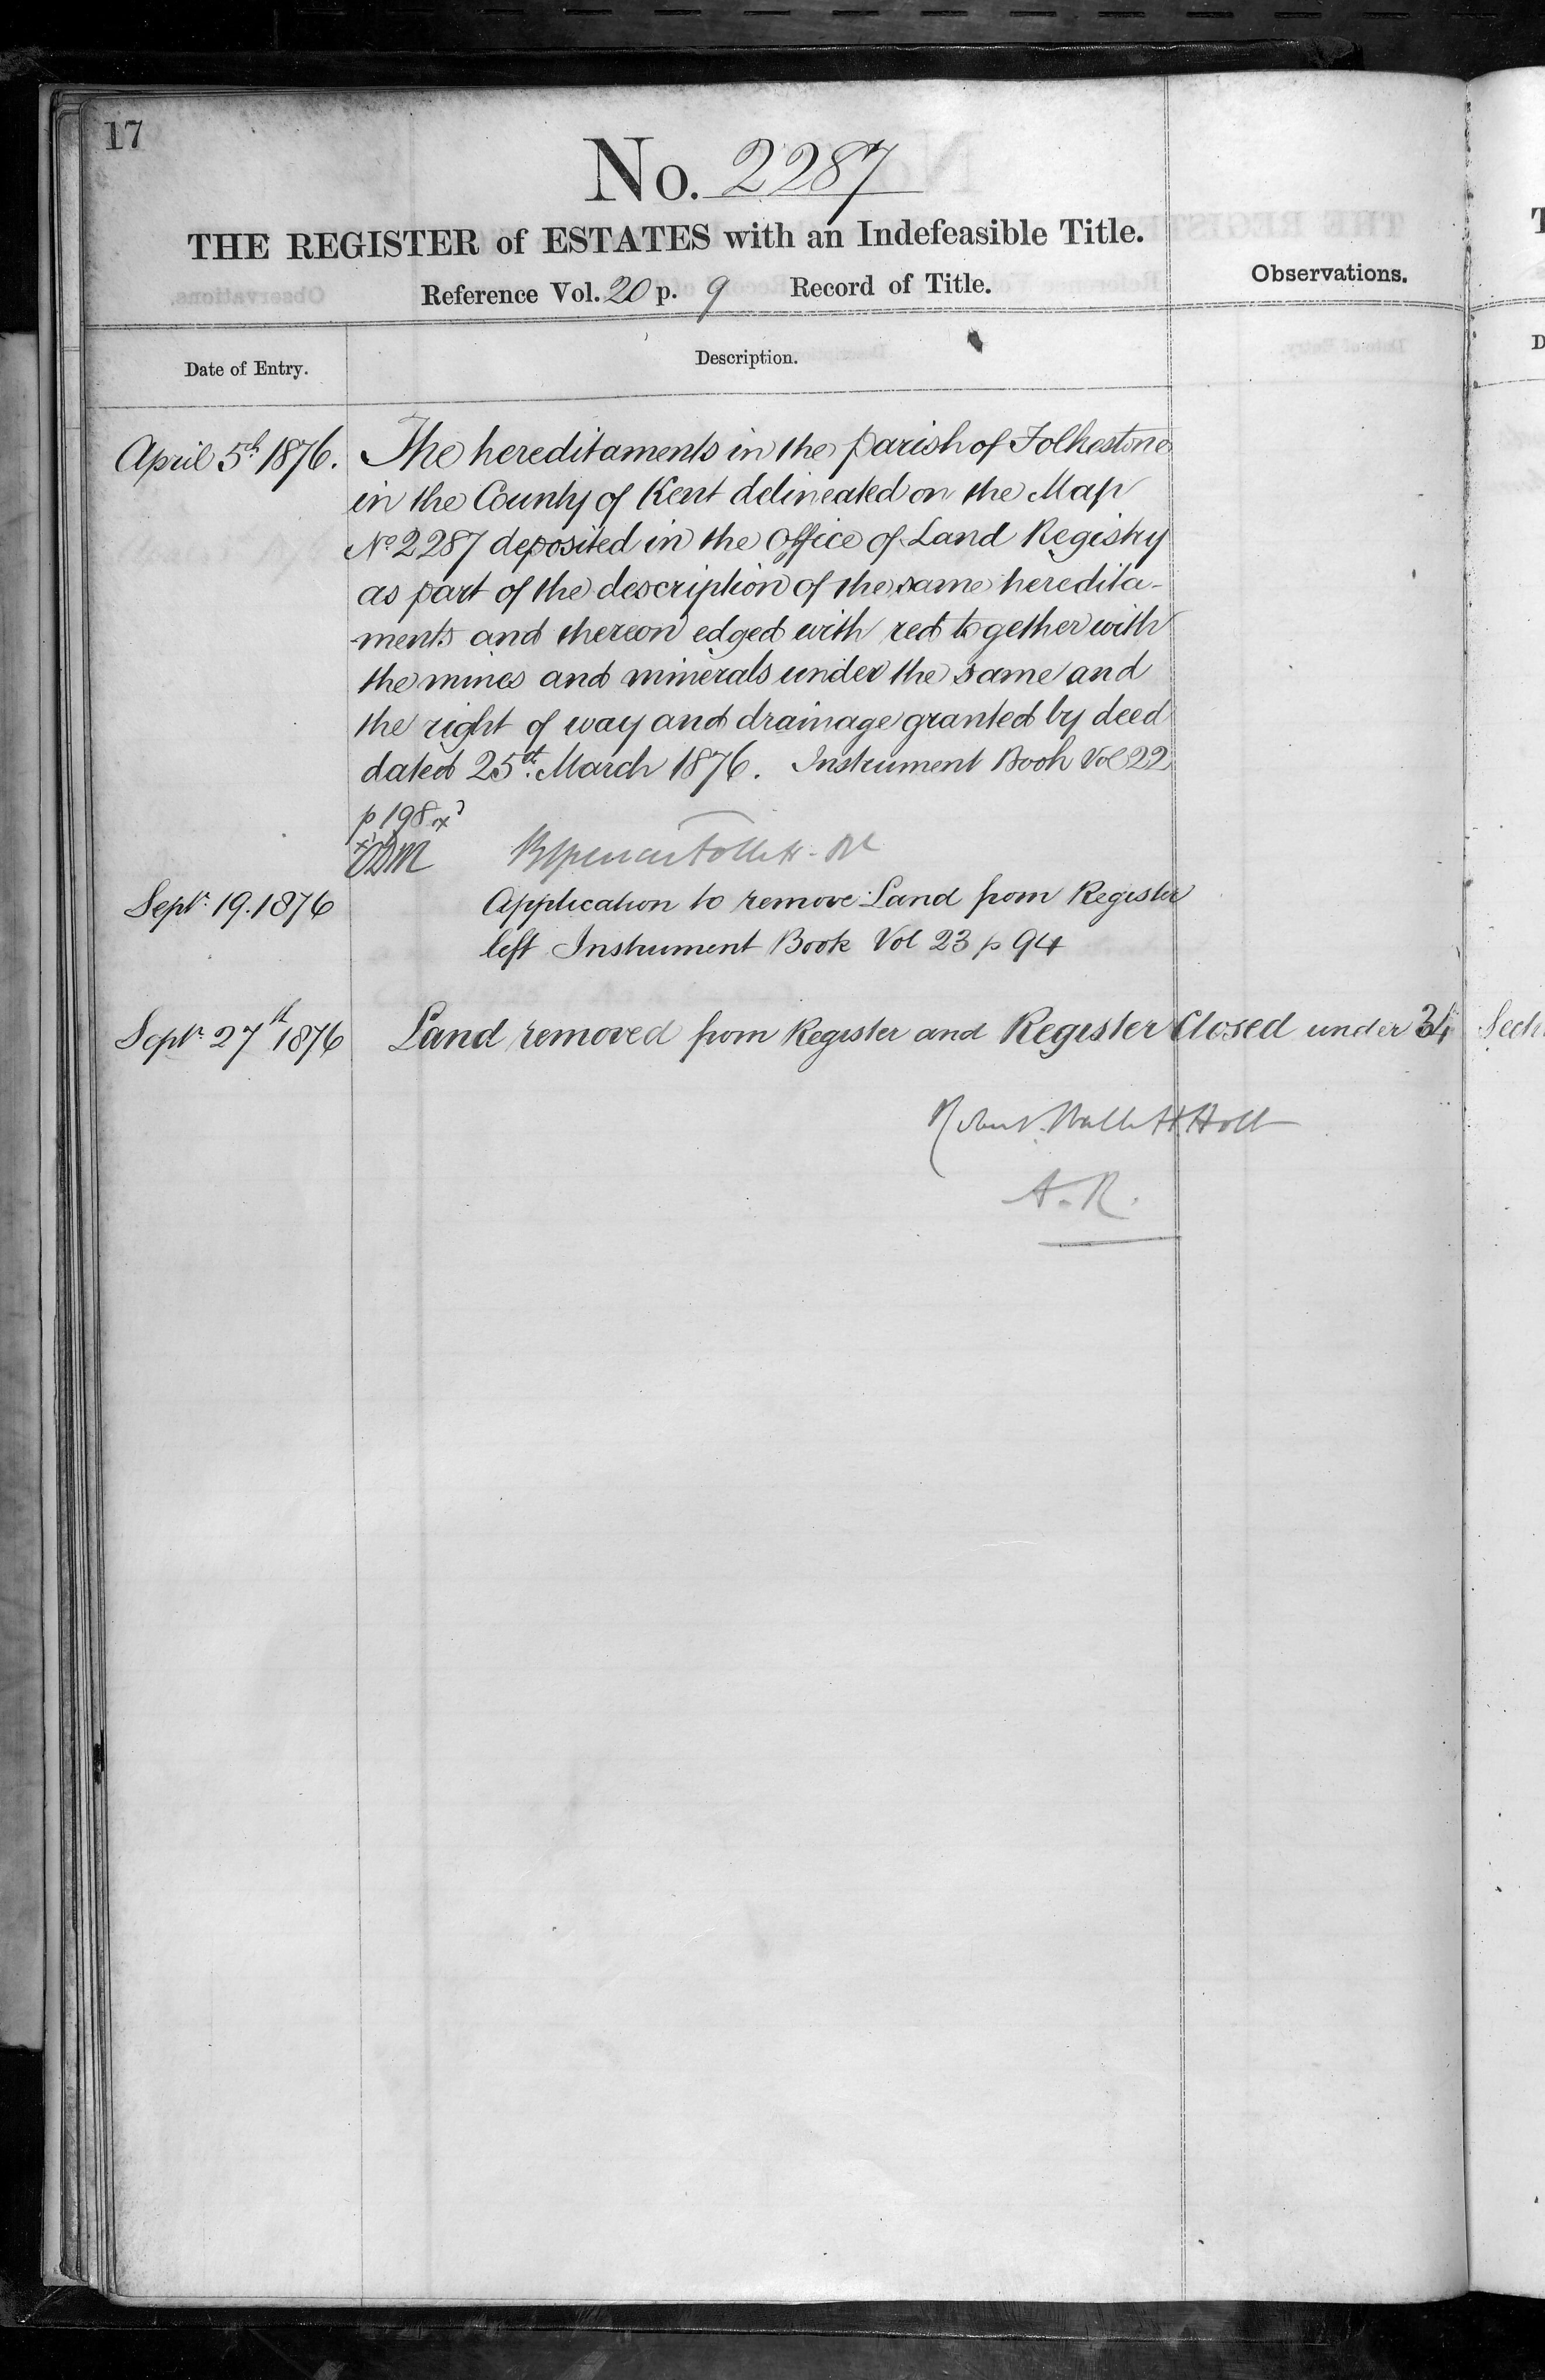 17
No. 2287
THE REGISTER of ESTATES with an Indefeasible Title.
Reference Vol. 20 p. 9 Record of Title.
Observations.
Date of Entry.
Description.
April 5th 1876. The hereditaments in the parish of Folkestone
in the County of Kent delineated on the Map
No 2287 deposited in the Office of Land Registry
as part of the description of the same heredita-
ments and thereon edged with red together with
the mines and minerals under the same and
the right of way and drainage granted by deed
dated 25th. March 1876. Instrument Book Vol 22
p 198
Sepr. 19. 1876 Application to remove Land from Register
left Instrument Book Vol 23 p 94
Sepr. 27th 1876 Land removed from Register and Register Closed under 34
Robert Hallett Holt
A. R.